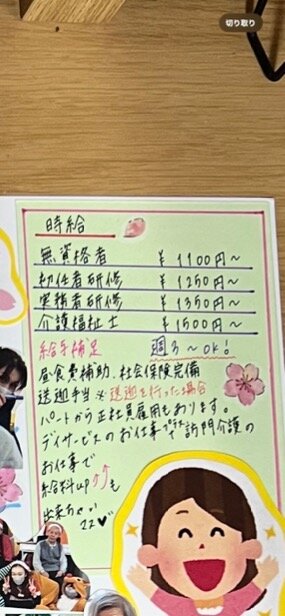 切り取り
時給
無資格者 ¥1100円〜
初任者研修 ¥1250円〜
実務者研修 ¥1350円〜
介護福祉士 ¥1500円〜
給与補足 週3〜OK!
昼食費補助、社会保険完備
送迎手当 ※送迎を行った場合
パートから正社員雇用もあります。
デイサービスのお仕事プラス訪問介護の
お仕事で
給料up⤴も
出来ちゃい
ます♥